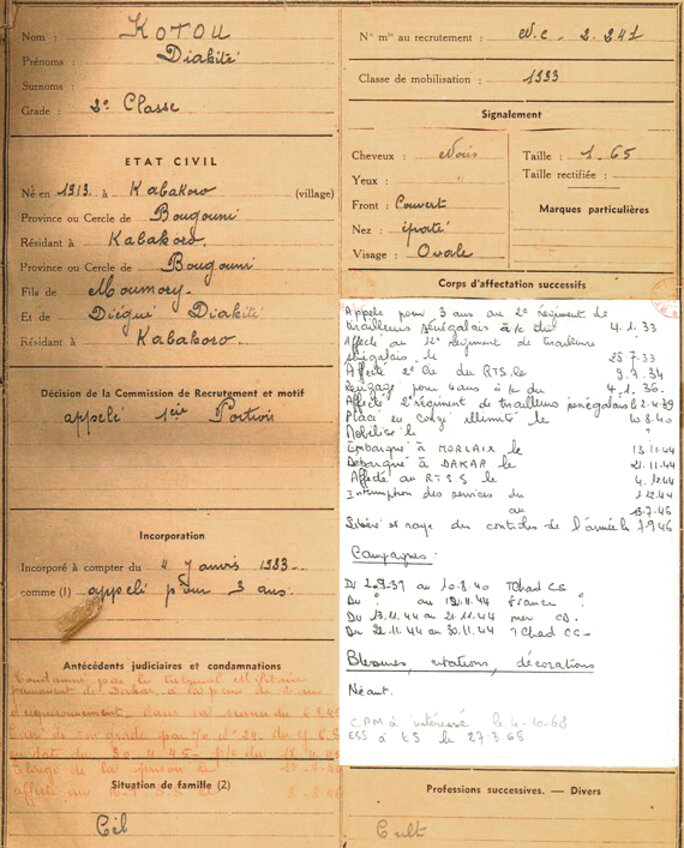 Nom : KOTOU
Prénoms : Diakité
Surnoms :
Grade : 2e Classe
ETAT CIVIL
Né en 1913 à Kabakoro (village)
Province ou Cercle de Bougouni
Résidant à Kabakoro.
Province ou Cercle de Bougouni
Fils de Moumory.
Et de Diégui Diakité
Résidant à Kabakoro.
Décision de la Commission de Recrutement et motif
appelé 1ère Portion
Incorporation
Incorporé à compter du 4 Janvier 1933.
comme (1) appelé pour 3 ans.
Antécédents judiciaires et condamnations
Condamné par le tribunal Militaire
permanent de Dakar, à la peine de 2 ans
d'emprisonnement, dans sa séance du 6.3.45
Cassé de son grade par
en date du 30.4.45 - p/c du 17.4.45
de la prison le
affecté au R.T.S.S le 3.8.46
Situation de famille (2)
Cél
N° mle au recrutement : N.C - 2.241
Classe de mobilisation : 1933
Signalement
Cheveux : Noirs
Yeux : "
Front : Couvert
Nez : épaté
Visage : Ovale
Taille : 1.65
Taille rectifiée :
Marques particulières
Corps d'affectation successifs
Appelé pour 3 ans au 2e Régiment de
tirailleurs sénégalais à/c du 4.1.33
Affecté au 12e Régiment de tirailleurs
sénégalais le 25.7.33
Affecté 2e Cie du RTS le 9.7.34
Rengagé pour 4 ans à/c du 4.1.36.
Affecté 2e régiment de tirailleurs sénégalais le 2.4.39
Placé en congé illimité le 10.8.40
Mobilisé le "
Embarqué à MORLAIX le 13.11.44
Débarqué à DAKAR le 21.11.44
Affecté au RTSS le 4.12.44
Interruption des services du 1.12.44
au 13.7.46
Libéré et rayé des contrôles de l'armée le 1.9.46
Campagnes :
Du 2.9.39 au 10.8.40 TChad CS
Du " au 12.11.44 France "
Du 13.11.44 au 21.11.44 mer CS.
Du 22.11.44 au 30.11.44 TChad CS-
Blessures, citations, décorations
Néant.
CPM à intéressé le 4-10-68
ESS à ES le 27.3.68
Professions successives. — Divers
Cult